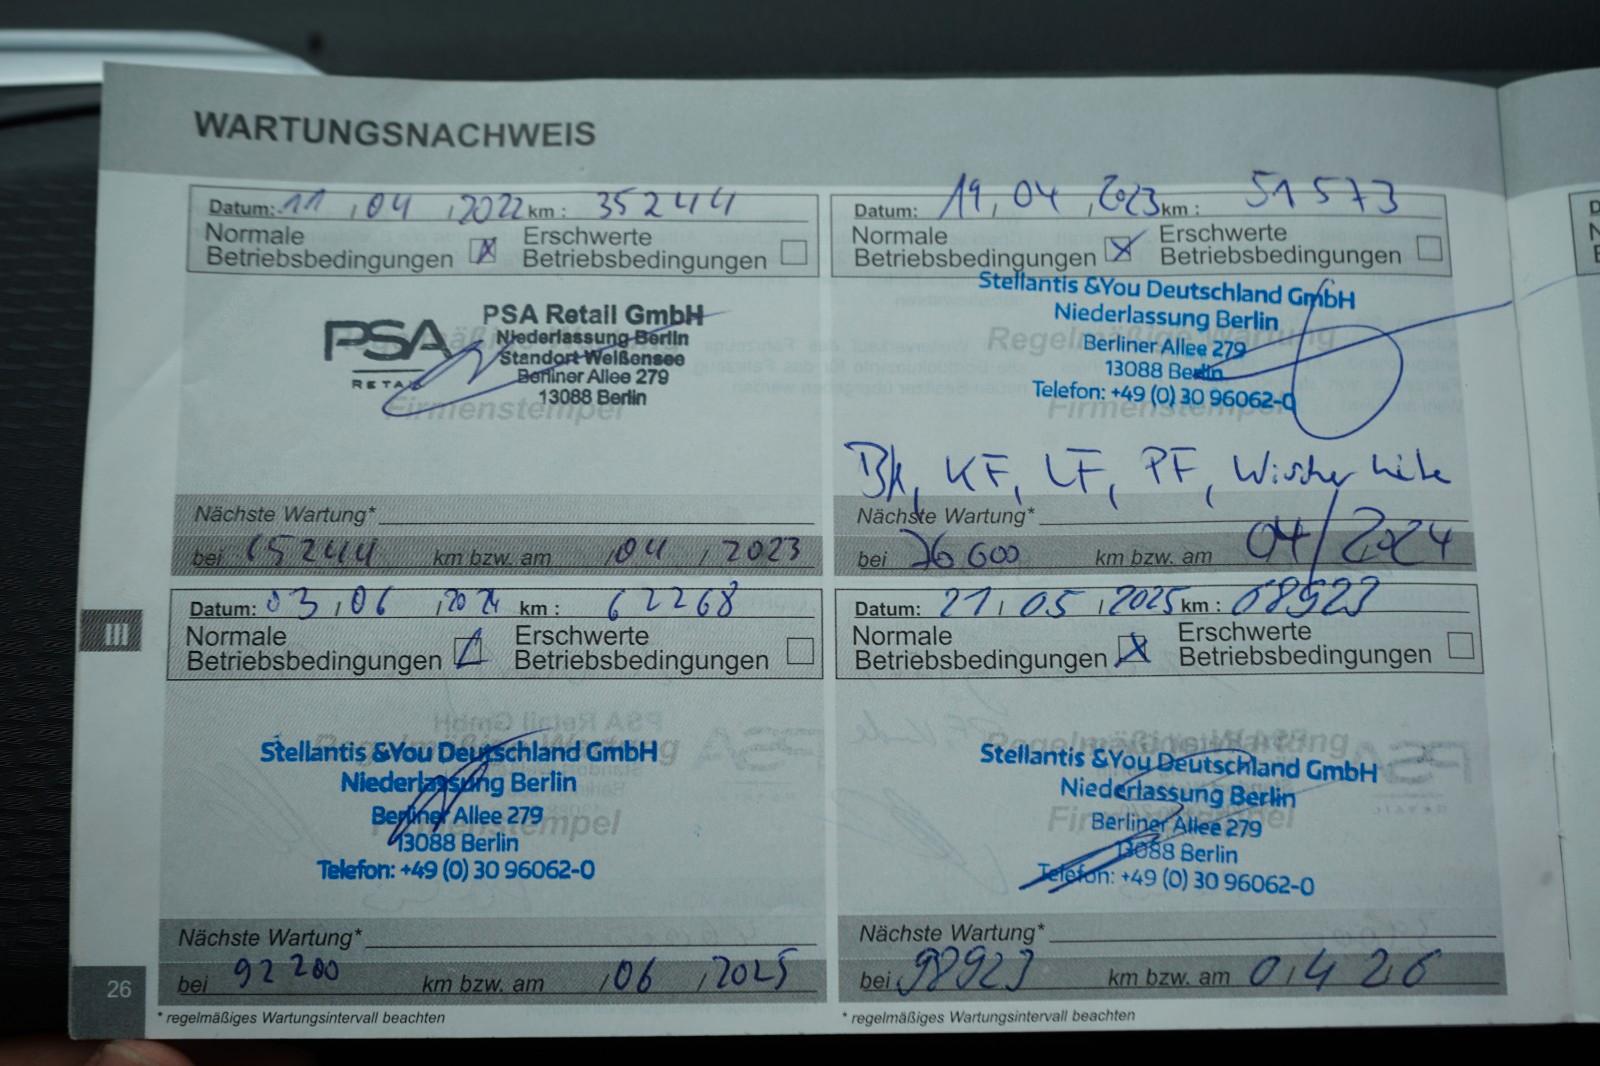 WARTUNGSNACHWEIS
Datum: 11 . 04 . 2022 km : 35244
Normale Betriebsbedingungen X Erschwerte Betriebsbedingungen
PSA RETAIL
PSA Retail GmbH
Niederlassung Berlin
Standort Weißensee
Berliner Allee 279
13088 Berlin
Firmenstempel
Nächste Wartung*
bei 65244 km bzw. am 04 . 2023
Datum: 19 . 04 . 2023 km : 51573
Normale Betriebsbedingungen X Erschwerte Betriebsbedingungen
Stellantis &You Deutschland GmbH
Niederlassung Berlin
Regelmäßige Wartung
Berliner Allee 279
13088 Berlin
Telefon: +49 (0) 30 96062-0
Firmenstempel
KF, LF, PF,
Nächste Wartung*
bei 76600 km bzw. am 04/2024
III
Datum: 03 . 06 . 2024 km : 62268
Normale Betriebsbedingungen Erschwerte Betriebsbedingungen
Stellantis &You Deutschland GmbH
Regelmäßige Wartung
Niederlassung Berlin
Berliner Allee 279
Firmenstempel
13088 Berlin
Telefon: +49 (0) 30 96062-0
Nächste Wartung*
bei 92200 km bzw. am 06 . 2025
* regelmäßiges Wartungsintervall beachten
Datum: 21 . 05 . 2025 km : 68923
Normale Betriebsbedingungen X Erschwerte Betriebsbedingungen
Regelmäßige Wartung
Stellantis &You Deutschland GmbH
Niederlassung Berlin
Berliner Allee 279
Firmenstempel
13088 Berlin
Telefon: +49 (0) 30 96062-0
Nächste Wartung*
bei 98923 km bzw. am 04 26
* regelmäßiges Wartungsintervall beachten
26